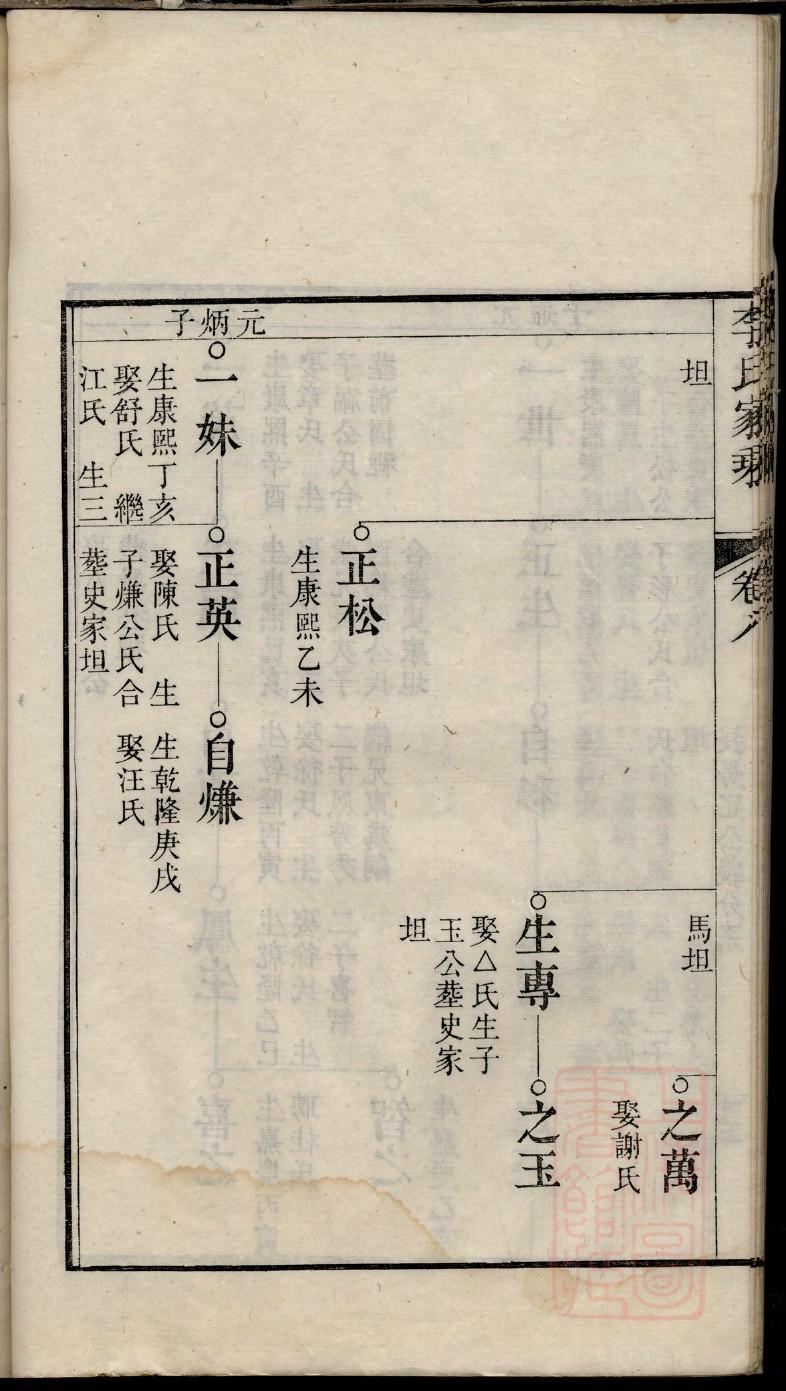 李氏家乘
卷八
坦
馬坦
之萬
娶謝氏
生專
之玉
娶△氏生子
玉公墓史家
坦
正松
生康熙乙未
元炳子
一妹
正英
自熑
生康熙丁亥
娶舒氏 繼
江氏 生三
娶陳氏 生
子熑公氏合
墓史家坦
生乾隆庚戌
娶汪氏